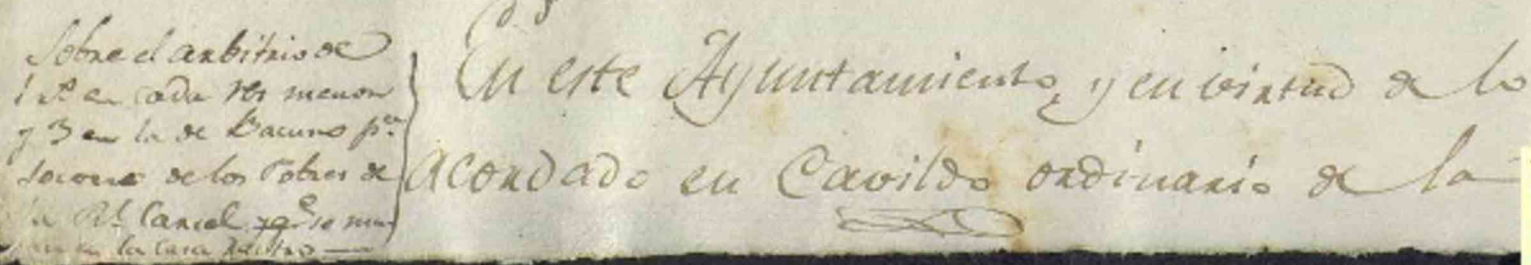 Sobre el arbitrio de
1 r.^l en cada res menor
y 3 en la de Bacuno p.^ra
socorro de los Pobres de
la R.^l Carcel y q.^e se
en la Casa
En este Ayuntamiento, y en virtud de lo
acordado en Cavildo ordinario de la